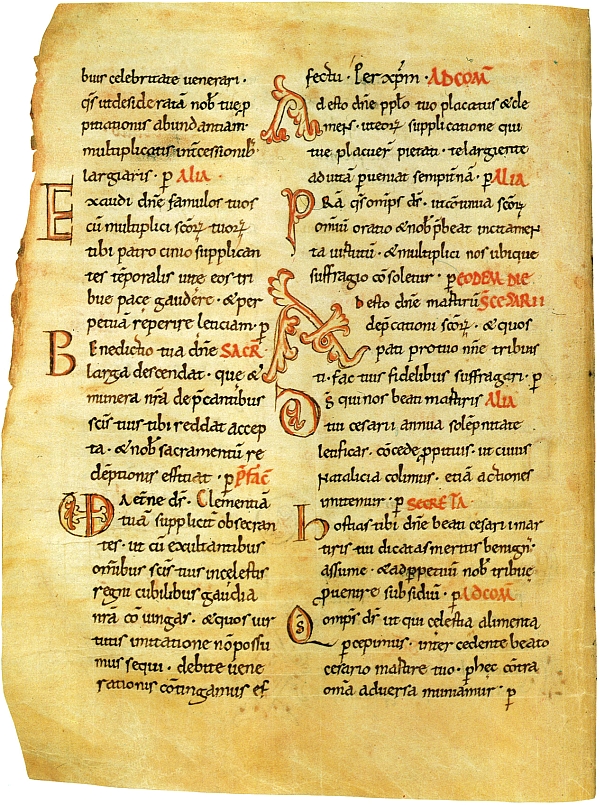 bus celebritate venerari ·
q̄s ut desideratā nob̄ tue p̱
pitiationis abundantiam
multiplicatis int̄cessorib;
largiaris · p̄ ALIA
Exaudi dn̄e famulos tuos
cū multiplici scōꝝ tuoꝝ
tibi patrocinio supplican
tes · tēporalis uite eos tri
bue pace gaudere · & per
petuā reperire leticiam · p̄
Benedictio tua dn̄e SACR̄
larga descendat · que &
munera nr̄a dep̄cantibus
scīs tuis tibi reddat accep
ta · & nob̄ sacramentū re
dēptionis efficiat · p̄ P̄FAC̄
VD aetn̄e ds̄ · Clementiā
tuā suppliciter obsecran
tes · ut cū exultantibus
om̄ibus scīs tuis in celestis
regni cubilibus gaudia
nr̄a cōiungas · & quos uir
tutis imitatione nō possu
mus sequi · debite uene
rationis cōtingamus ef
fectu · Per xp̄m · AD COM̄
Adesto dn̄e pplō tuo placatus & cle
mens · ut eoꝝ supplicatione qui
tue placuer̄ pietati · te largiente
ad uitā p̱ueniat sempit̄nā · p̄ ALIA
PRĀ q̄s om̄ips̄ ds̄ · ut continua scōꝝ
omniū oratio & nob̄ p̄beat incitamen
ta uirtutū · & multiplici nos ubique
suffragio cōsoletur · p̄ EODEM DIE
Adesto dn̄e martirū SC̄I CESARII
dep̄cationi scōꝝ · & quos
pati pro tuo nn̄e tribuis
ti · fac tuis fidelibus suffragari · p̄
Ds̄ qui nos beati martiris ALIA
tui cesarii annua solēpnitate
letificas · cōcede p̱pitius · ut cuius
natalicia colimus · etiā actiones
imitemur · p̄ SECRETA
Hostias tibi dn̄e beati cesarii mar
tiris tui dicatas meritis benign̄
assume · & ad p̱petuū nob̄ tribue
p̱uenire subsidiū · p̄ AD COM̄
Q̄s omp̄s ds̄ ut qui celestia alimenta
percepimus · intercedente beato
cesario martire tuo · p̱ hec cōtra
om̄ia aduersa muniamur · p̄